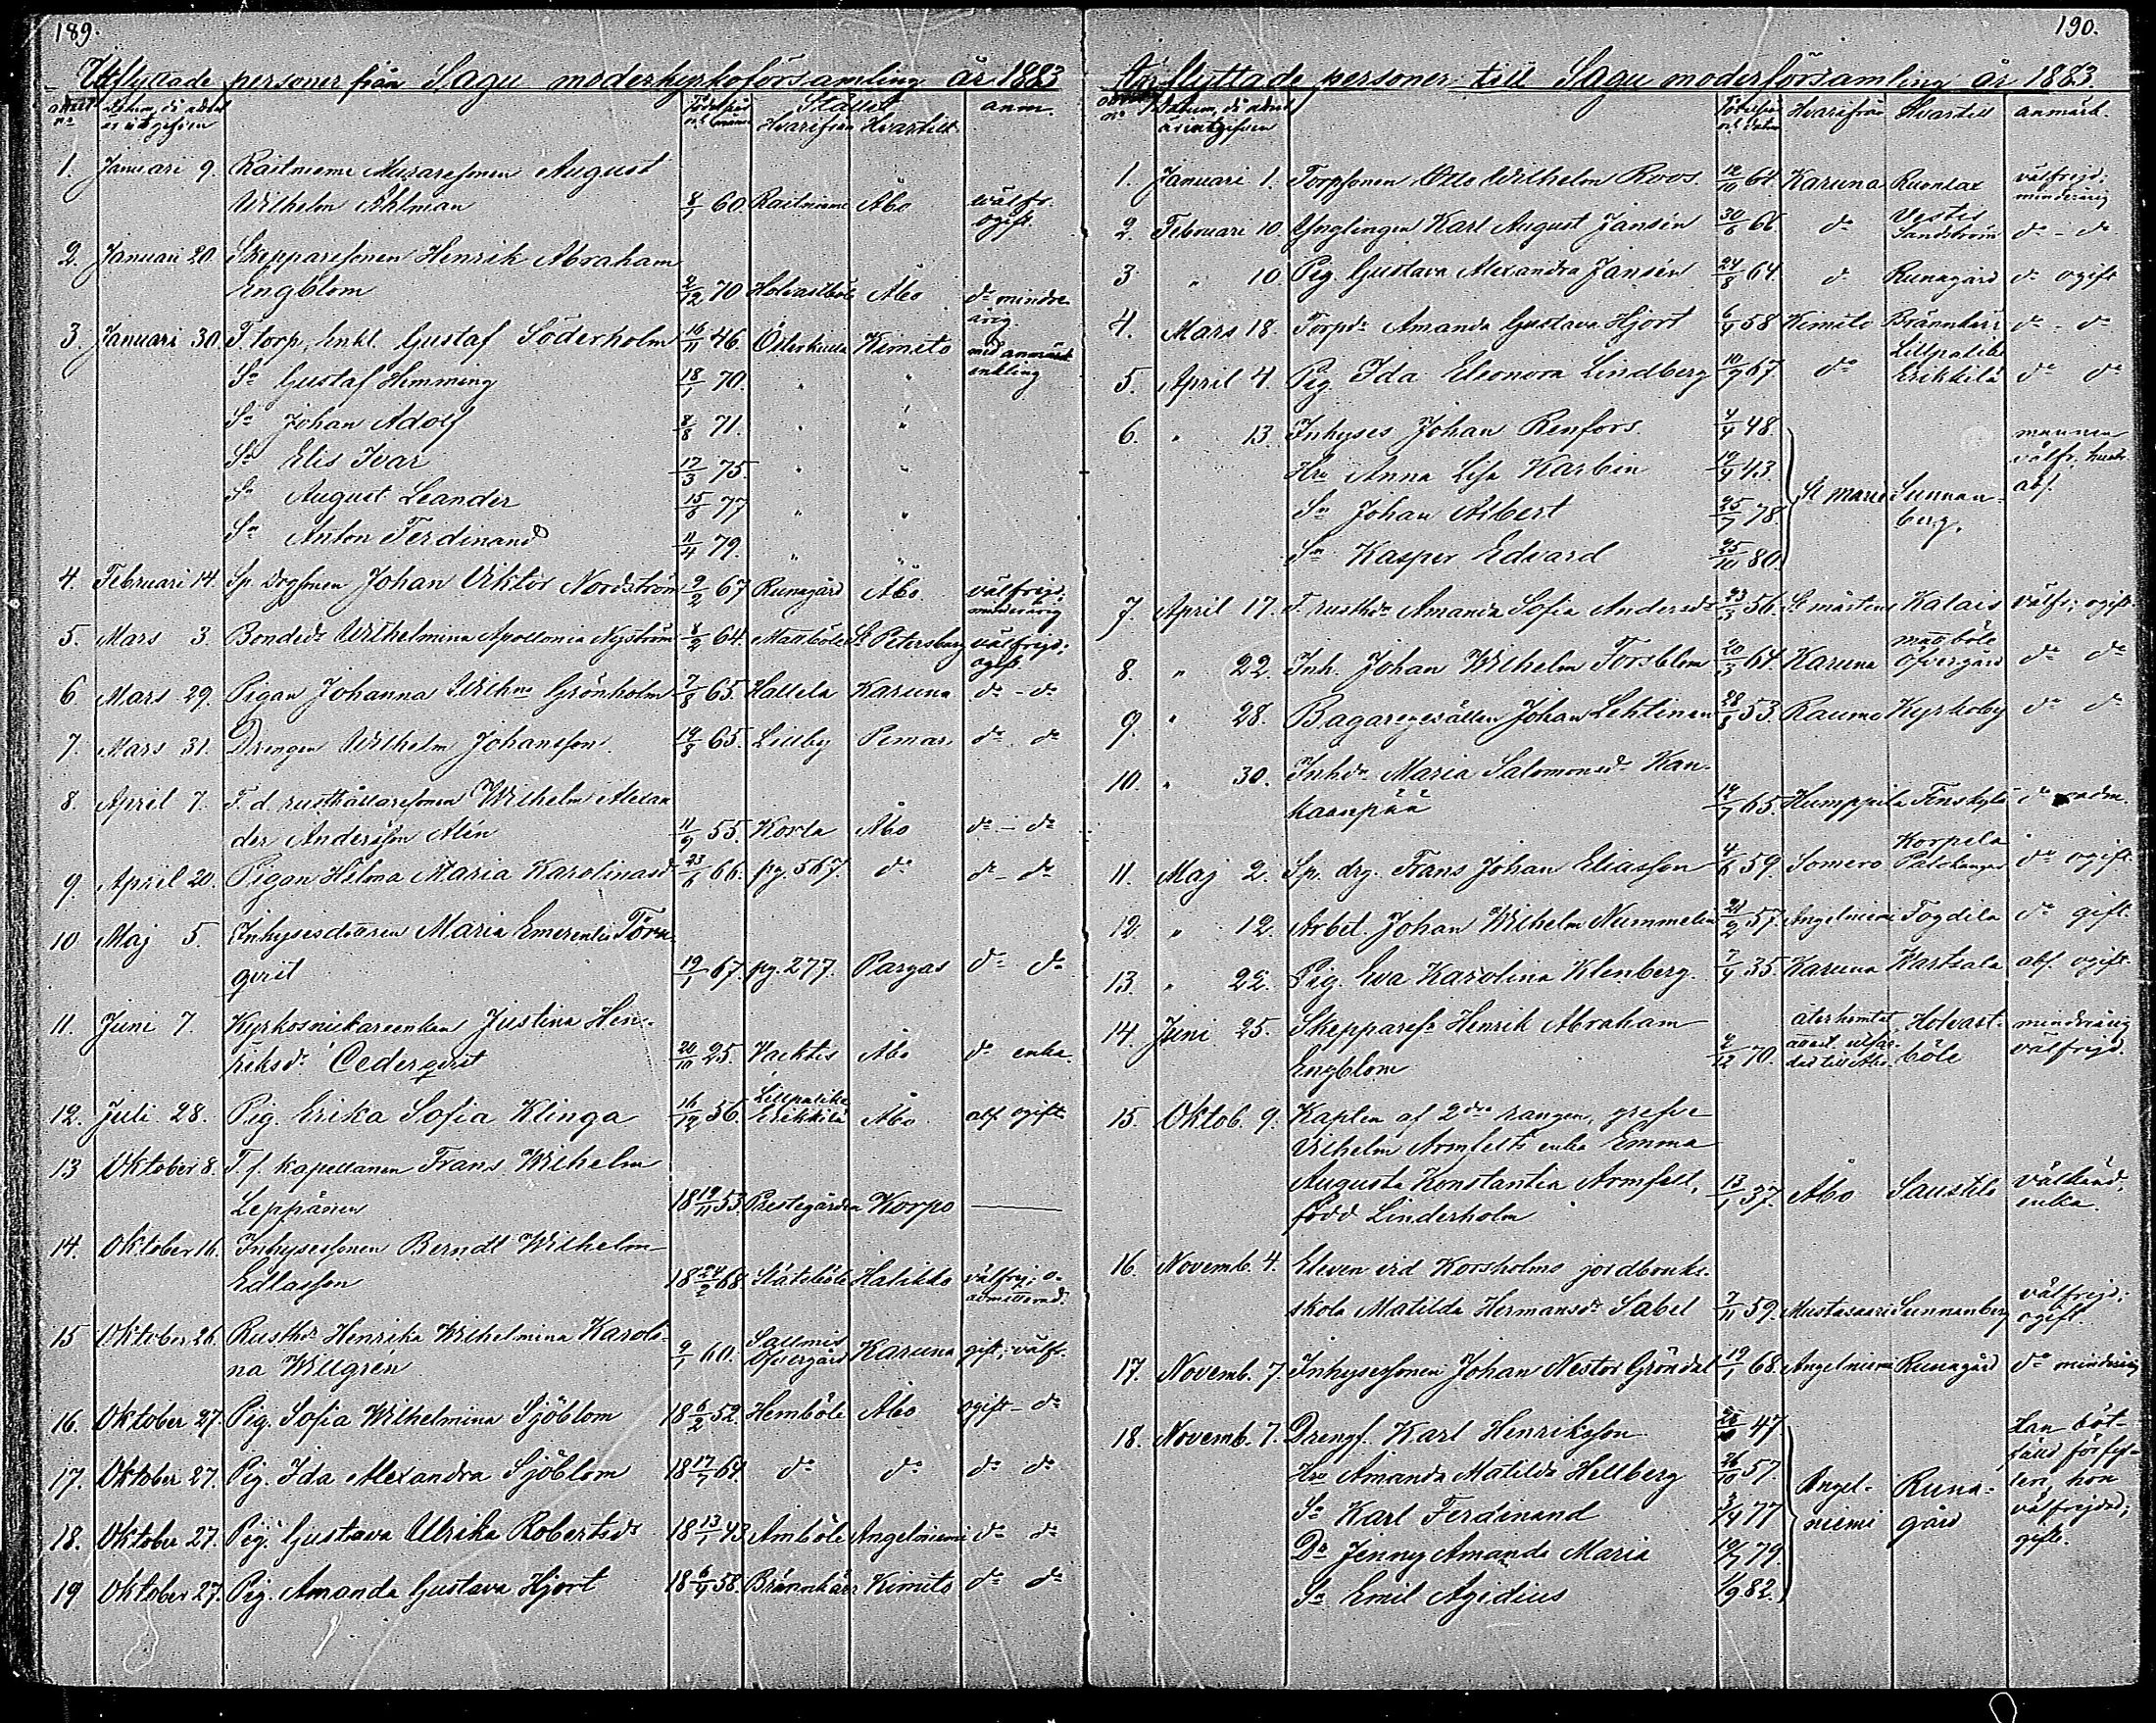 189.
Utflyttade personer från Sagu moderkyrkoförsamling år 1883
attest no Datum, då attest är utgifven Stället Hvarifrån Hvartill anm.
1. Januari 9. Rastniemi Muraresonen August
Wilhelm Åhlman 8/1 60. Rastniemi Åbo välfr. ogift.
2. Januari 20. Skepparesonen Henrik Abraham
Engblom 2/12 70 Holvastböle Åbo do minderårig.
3. Januari 30. T. torp. enkl. Gustaf Söderholm 16/11 46. Österkulla Kimito enkling
Sn Gustaf Hemming 18/1 70. " "
Sn Johan Adolf 8/8 71. " "
Sn Elis Ivar 17/3 75. " "
Sn August Leander 15/6 77 " "
Sn Anton Ferdinand 11/4 79. " "
4. Februari 14. Sp. drgsonen Johan Viktor Nordström 9/2 67 Runagård Åbo välfrejd. minderårig
5. Mars 3. Bondedr Wilhelmina Apollonia Nyström 8/2 64. Mattböle St Petersburg välfrejd; ogift.
6 Mars 29. Pigan Johanna Wilhna Grönholm 7/8 65. Hallela Karuna do - do
7. Mars 31. Drengen Wilhelm Johansson. 19/8 65. Lillby Pemar do do
8. April 7. F. d. rusthållaresonen Wilhelm Alexan
der Andersson Alén 11/9 55. Korta Åbo do - do
9. April 20. Pigan Hilma Maria Karolinasdr 23/6 66. pg. 567. do do - do
10 Maj 5. Inhysesdottren Maria Emerentia Törn
qvist 19/1 67. pg. 277. Pargas do do
11. Juni 7. Kyrkosnickareenkan Justina Hen-
riksdr Cederqvist 20/10 25. Vacktis Åbo do enka.
12. Juli 28. Pig. Erika Sofia Klinga 16/12 56. Lillpatike Erikkilä Åbo. abs. ogift
13 Oktober 8. T. f. kapellanen Frans Wilhelm
Leppänen 18 19/11 53. Prestegården Korpo ———
14. Oktober 16. Inhysessonen Berndt Wilhelm
Edlasson 18 24/2 68. Ståtsböle Halikko välfrej; o- admitterad.
15 Oktober 26. Rusthdr Henrika Wilhelmina Karoli-
na Willgrén 9/1 60. Salmis Öfvergård Karuna gift, välfr.
16. Oktober 27. Pig. Sofia Wilhelmina Sjöblom 18 6/2 52. Hemböle Åbo ogift - do
17. Oktober 27. Pig. Ida Alexandra Sjöblom 18 17/7 64 do do do do
18. Oktober 27. Pig. Gustava Ulrika Robertsdr 18 13/1 43 Amböle Angelniemi do do
19 Oktober 27. Pig. Amanda Gustava Hjort 18 6/4 58. Brännkärr Kimito do do
190.
Inflyttade personer till Sagu moderförsamling år 1883.
no Datum, då attest är utgifven Hvarifrån Hvartill anmärk.
1. Januari 1. Torpsonen Otto Wilhelm Roos. 12/10 64. Karuna Ruonlax välfrejd; minderårig
2. Februari 10. Ynglingen Karl August Jansén 30/6 66. do Vestis Sandström do - do
3 " 10. Pig. Gustava Alexandra Jansén 24/8 64. do Runagård do ogift
4. Mars 18. Torpdr Amanda Gustava Hjort 6/4 58 Kimito Brännkärr do - do
5. April 4. Pig. Ida Eleonora Lindberg 10/9 67 do Lillpatike Erikkilä do do
6. " 13. Inhyses Johan Renfors. 4/4 48.
Hru Anna Lisa Karbin 19/9 43.
Sn Johan Albert 25/7 78.
Sn Kasper Edvard 25/10 80.
St marie Sunnan-
berg. mannen välfr, hust abs.
7. April 17. F. rusthdr Amanda Sofia Andersdr 23/3 56. St mårtens Kalais välfr; ogift
8. " 22. Inh. Johan Wilhelm Forsblom 20/3 64 Karuna mattböle Öfvergård do do
9. " 28. Bagaregesällen Johan Lehtinen 28/8 53. Raumo Kyrkoby do do
10. " 30. Inhdr Maria Salomonsdr Kan-
kaanpää 12/7 65. Humppila Finskyla do
11. Maj 2. Sp. drg. Frans Johan Eliasson 4/6 59. Somero Korpela do ogift.
12. " 12. Arbet. Johan Wilhelm Nummelin 21/2 57. Angelniemi Fogdila do gift.
13. " 22. Pig. Eva Karolina Klenberg. 7/4 35. Karuna Kartsala abs. ogift.
14. Juni 25. Skepparesn Henrik Abraham
Engblom 2/12 70. återhemtet attest utfär- dad till Åbo. Holvast- böle minderårig välfrejd.
15. Oktob. 9. Kapten af 2dra rangen, grefve
Vilhelm Armfelts enka Emma
Augusta Konstantia Armfelt,
född Linderholm 13/1 37. Åbo Saustila välkänd, enka.
16. Novemb. 4. Eleven vid Korsholms jordbruks-
skola Matilda Hermansdr Sabel 7/11 59. Mustasaari Sunnanberg välfrejd; ogift.
17. Novemb. 7. Inhysessonen Johan Nestor Gröndal 19/1 68. Angelniemi Runagård do minderårig
18. Novemb. 7. Drengs. Karl Henriksson 47.
Hru Amanda Matilda Hellberg 26/10 57.
Sn Karl Ferdinand 3/4 77
Dr Jenny Amanda Maria 19/7 79.
Sn Emil Agidius 1/9 82.
Angel-
niemi Runa-
gård han böt-
fälld för fyl-
leri, hon
välfrejdad;
gifte.